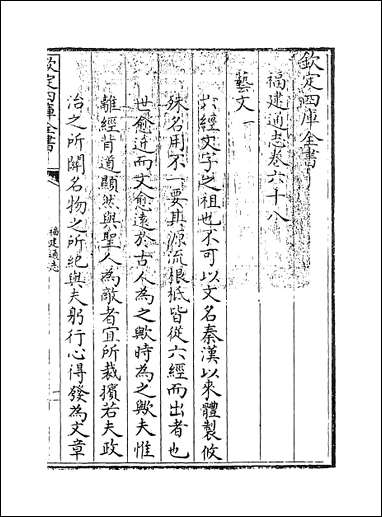 欽定四庫全書
福建通志卷六十八
藝文一
六經文字之祖也不可以文名秦漢以來體製攸
殊名用不一要其源流根柢皆從六經而出者也
世愈近而文愈遠於古人為之歟時為之歟夫惟
離經背道顯然與聖人為敵者宜所裁擯若夫政
治之所關名物之所紀與夫躬行心得發為文章
欽定四庫全書
福建通志
一